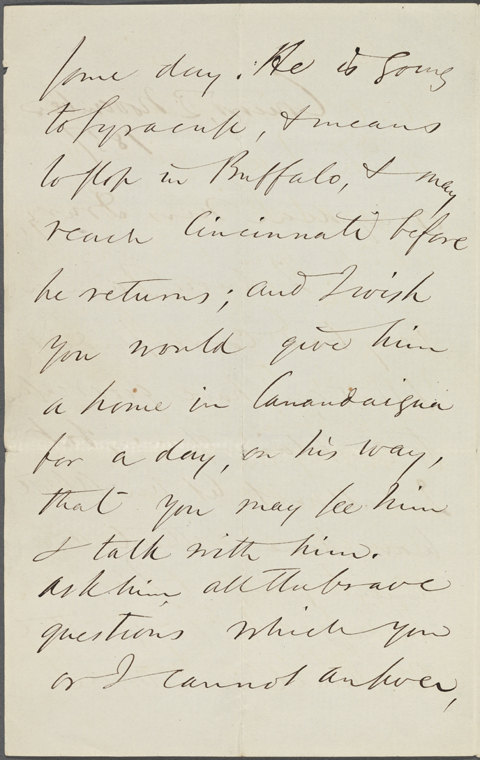 some day. He is going
to Syracuse, & means
to stop in Buffalo, & may
reach Cincinnati before
he returns; and I wish
you would give him
a home in Canandaigua
for a day, on his way,
that you may see him
& talk with him.
Ask him all the brave
questions which you
or I cannot answer,